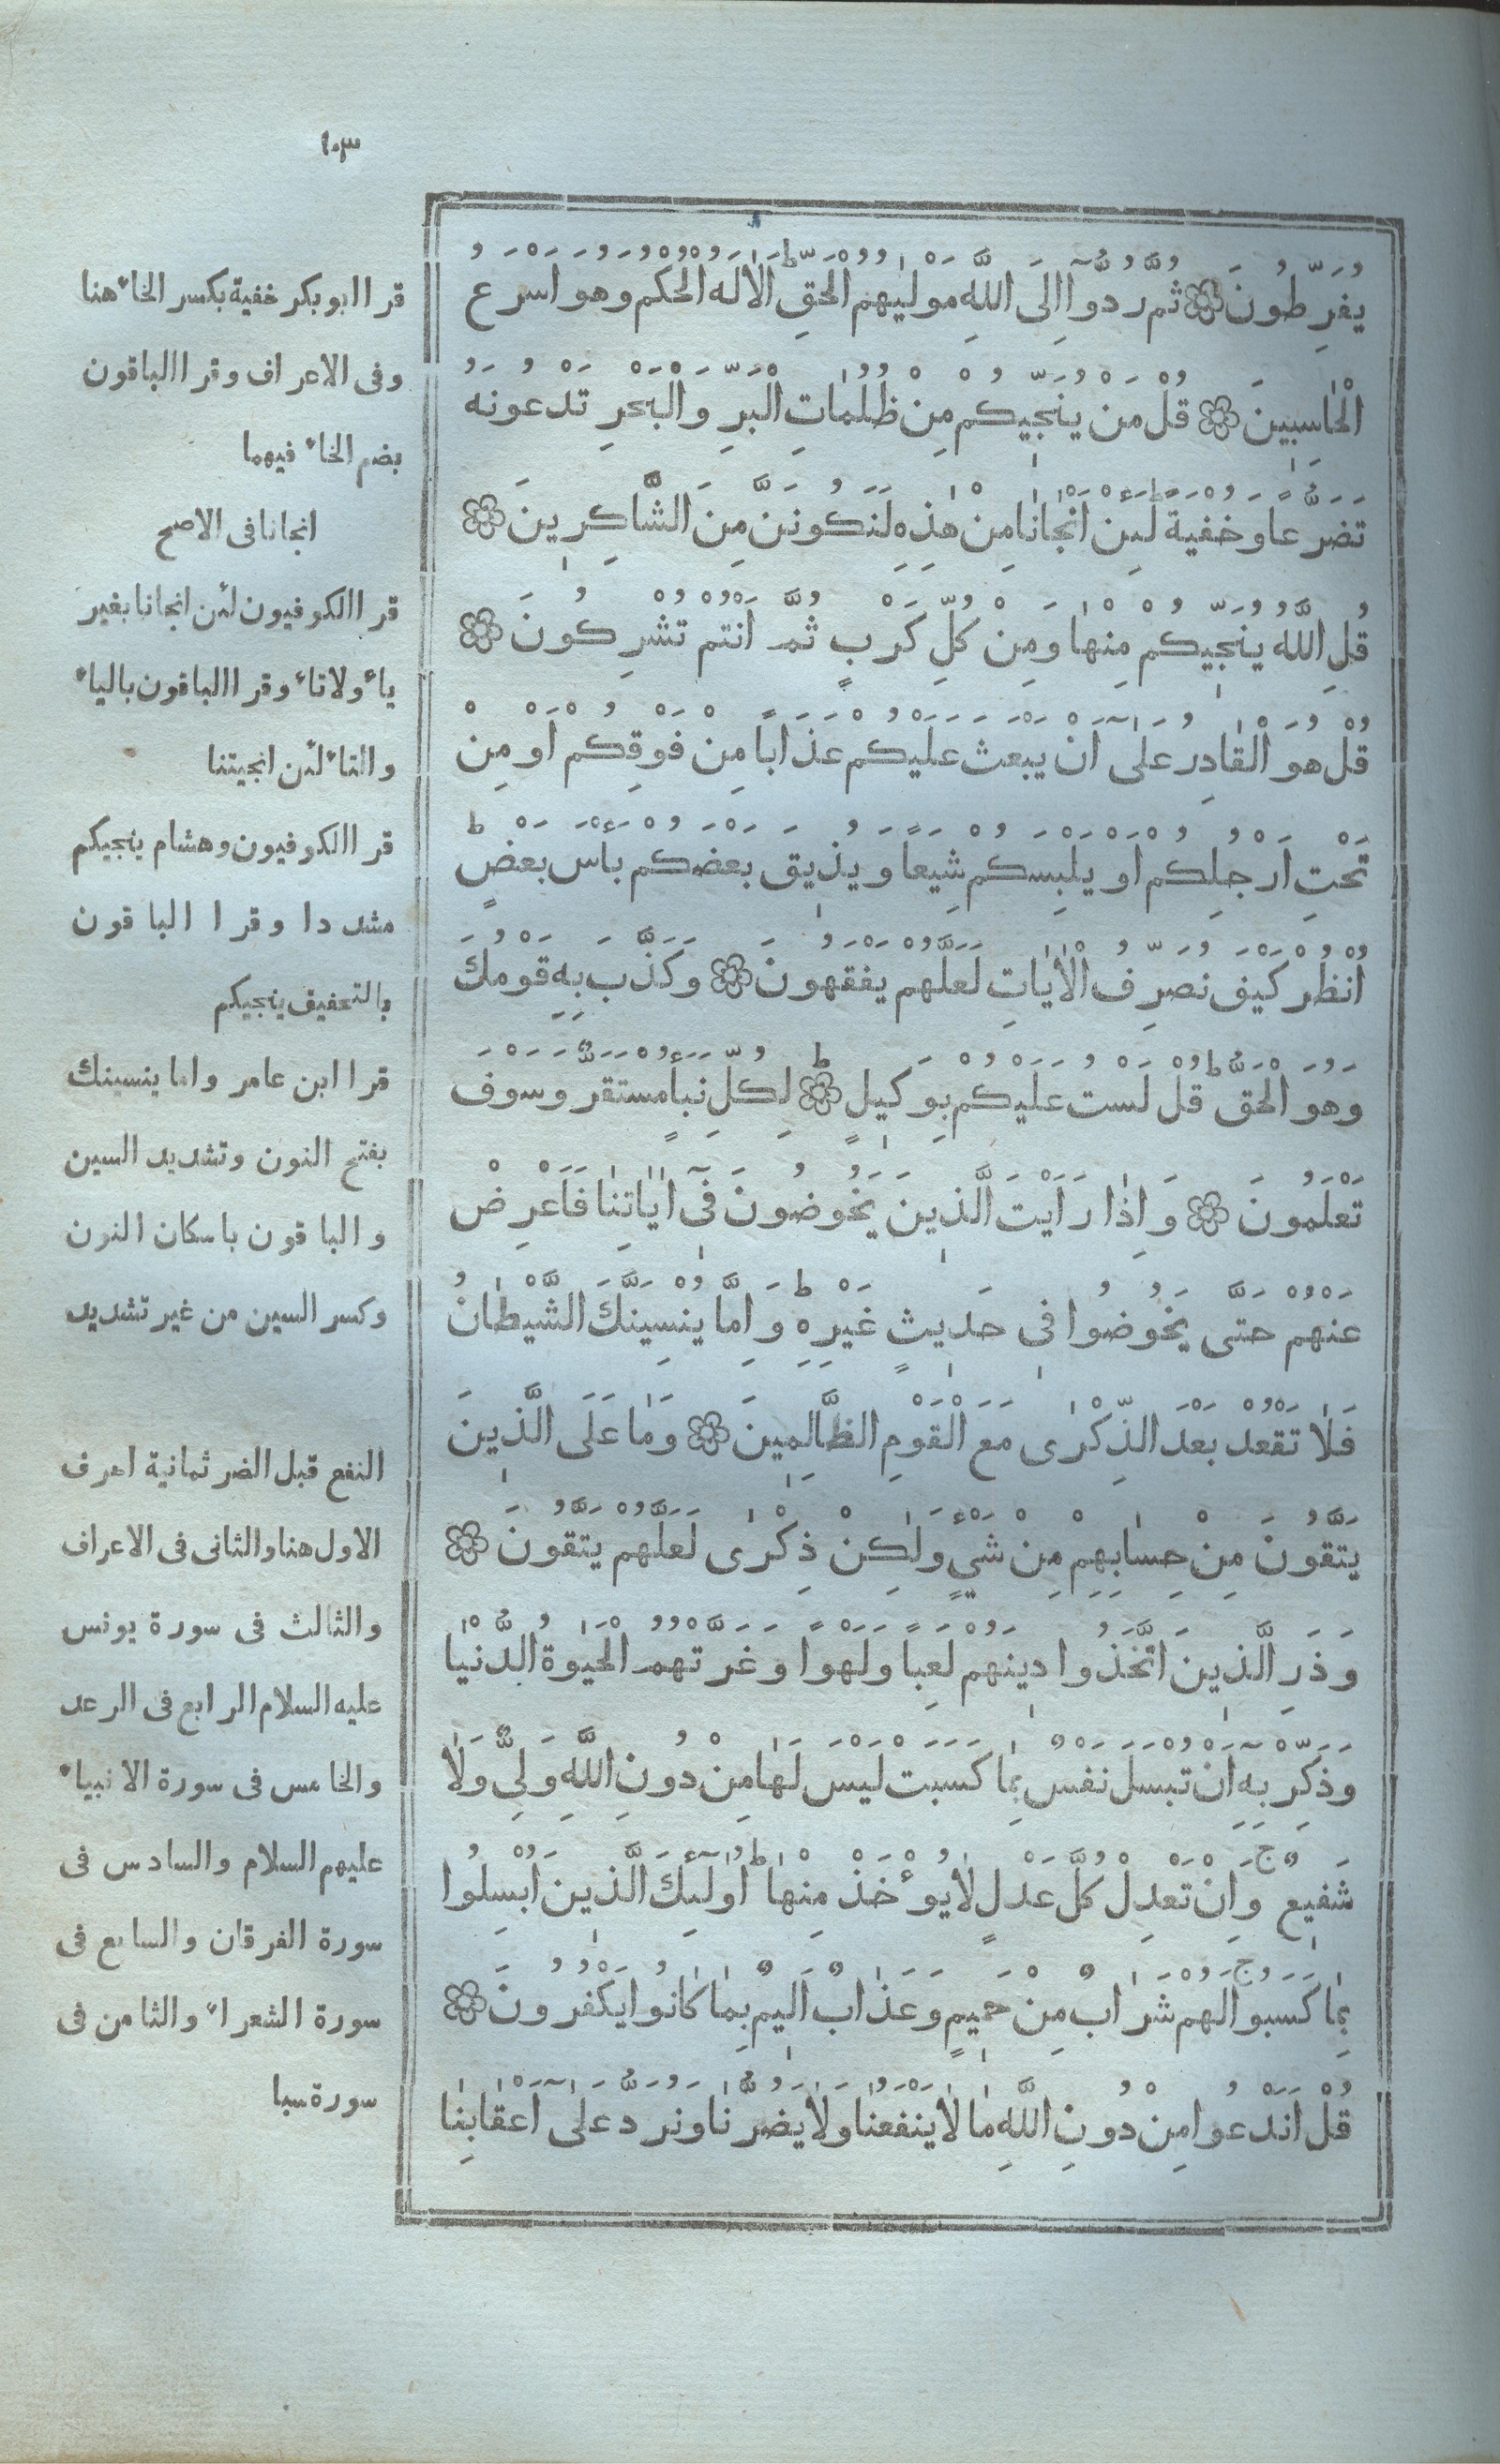 ١٠٣
يُفَرِّطُونَ ۞ ثُمَّ رُدُّوآ اِلَى اللَّهِ مَوْلٰيهُمُ الْحَقِّ ط اَلَا لَهُ الْحُكْمُ وَهُوَ اَسْرَعُ
الْحَاسِبِينَ ۞ قُلْ مَنْ يُنَجِّيكُمْ مِنْ ظُلُمَاتِ الْبَرِّ وَالْبَحْرِ تَدْعُونَهُ
تَضَرُّعًا وَخُفْيَةً ط لَئِنْ اَنْجٰانٰا مِنْ هٰذِهِ لَنَكُونَنَّ مِنَ الشَّاكِرِينَ ۞
قُلِ اللَّهُ يُنَجِّيكُمْ مِنْهٰا وَمِنْ كُلِّ كَرْبٍ ثُمَّ اَنْتُمْ تُشْرِكُونَ ۞
قُلْ هُوَ الْقٰادِرُ عَلٰٓى اَنْ يَبْعَثَ عَلَيْكُمْ عَذَابًا مِنْ فَوْقِكُمْ اَوْ مِنْ
تَحْتِ اَرْجُلِكُمْ اَوْ يَلْبِسَكُمْ شِيَعًا وَيُذِيقَ بَعْضَكُمْ بَأْسَ بَعْضٍ ط
اُنْظُرْ كَيْفَ نُصَرِّفُ الْاٰيٰاتِ لَعَلَّهُمْ يَفْقَهُونَ ۞ وَكَذَّبَ بِهِ قَوْمُكَ
وَهُوَ الْحَقُّ ط قُلْ لَسْتُ عَلَيْكُمْ بِوَكِيلٍ ط ۞ لِكُلِّ نَبَأٍ مُسْتَقَرٌّ وَسَوْفَ
تَعْلَمُونَ ۞ وَاِذٰا رَاَيْتَ الَّذِينَ يَخُوضُونَ فِىٓ اٰيٰاتِنٰا فَاَعْرِضْ
عَنْهُمْ حَتَّى يَخُوضُوا فِى حَدِيثٍ غَيْرِهِ ط وَاِمَّا يُنْسِيَنَّكَ الشَّيْطٰانُ
فَلٰا تَقْعُدْ بَعْدَ الذِّكْرٰى مَعَ الْقَوْمِ الظَّالِمِينَ ۞ وَمٰا عَلَى الَّذِينَ
يَتَّقُونَ مِنْ حِسٰابِهِمْ مِنْ شَيْءٍ وَلٰكِنْ ذِكْرٰى لَعَلَّهُمْ يَتَّقُونَ ۞
وَذَرِ الَّذِينَ اتَّخَذُوا دِينَهُمْ لَعِبًا وَلَهْوًا وَغَرَّتْهُمُ الْحَيٰوةُ الدُّنْيٰا
وَذَكِّرْ بِهِٓ اَنْ تُبْسَلَ نَفْسٌ بِمٰا كَسَبَتْ لَيْسَ لَهٰا مِنْ دُونِ اللَّهِ وَلِىٌّ وَلٰا
شَفِيعٌ ج وَاِنْ تَعْدِلْ كُلَّ عَدْلٍ لٰا يُؤْخَذْ مِنْهٰا ط اُولٰٓئِكَ الَّذِينَ اُبْسِلُوا
بِمٰا كَسَبُوا ج لَهُمْ شَرٰابٌ مِنْ حَمِيمٍ وَعَذٰابٌ اَلِيمٌ بِمٰا كٰانُوا يَكْفُرُونَ ۞
قُلْ اَنَدْعُوا مِنْ دُونِ اللَّهِ مٰا لٰا يَنْفَعُنٰا وَلٰا يَضُرُّنٰا وَنُرَدُّ عَلٰٓى اَعْقٰابِنٰا
قرا ابو بكر خفية بكسر الخاء هنا
وفى الاعراف وقرا الباقون
بضم الخاء فيهما
انجانا فى الاصح
قرا الكوفيون لئن انجانا بغير
ياء ولا تاء وقرا الباقون بالياء
والتاء لئن انجيتنا
قرا الكوفيون وهشام ينجيكم
مشددا وقرا الباقون
بالتخفيف ينجيكم
قرا ابن عامر واما ينسينك
بفتح النون وتشديد السين
والباقون باسكان النون
وكسر السين من غير تشديد
النفع قبل الضر ثمانية احرف
الاول هنا والثانى فى الاعراف
والثالث فى سورة يونس
عليه السلام الرابع فى الرعد
والخامس فى سورة الانبياء
عليهم السلام والسادس فى
سورة الفرقان والسابع فى
سورة الشعراء والثامن فى
سورة سبا